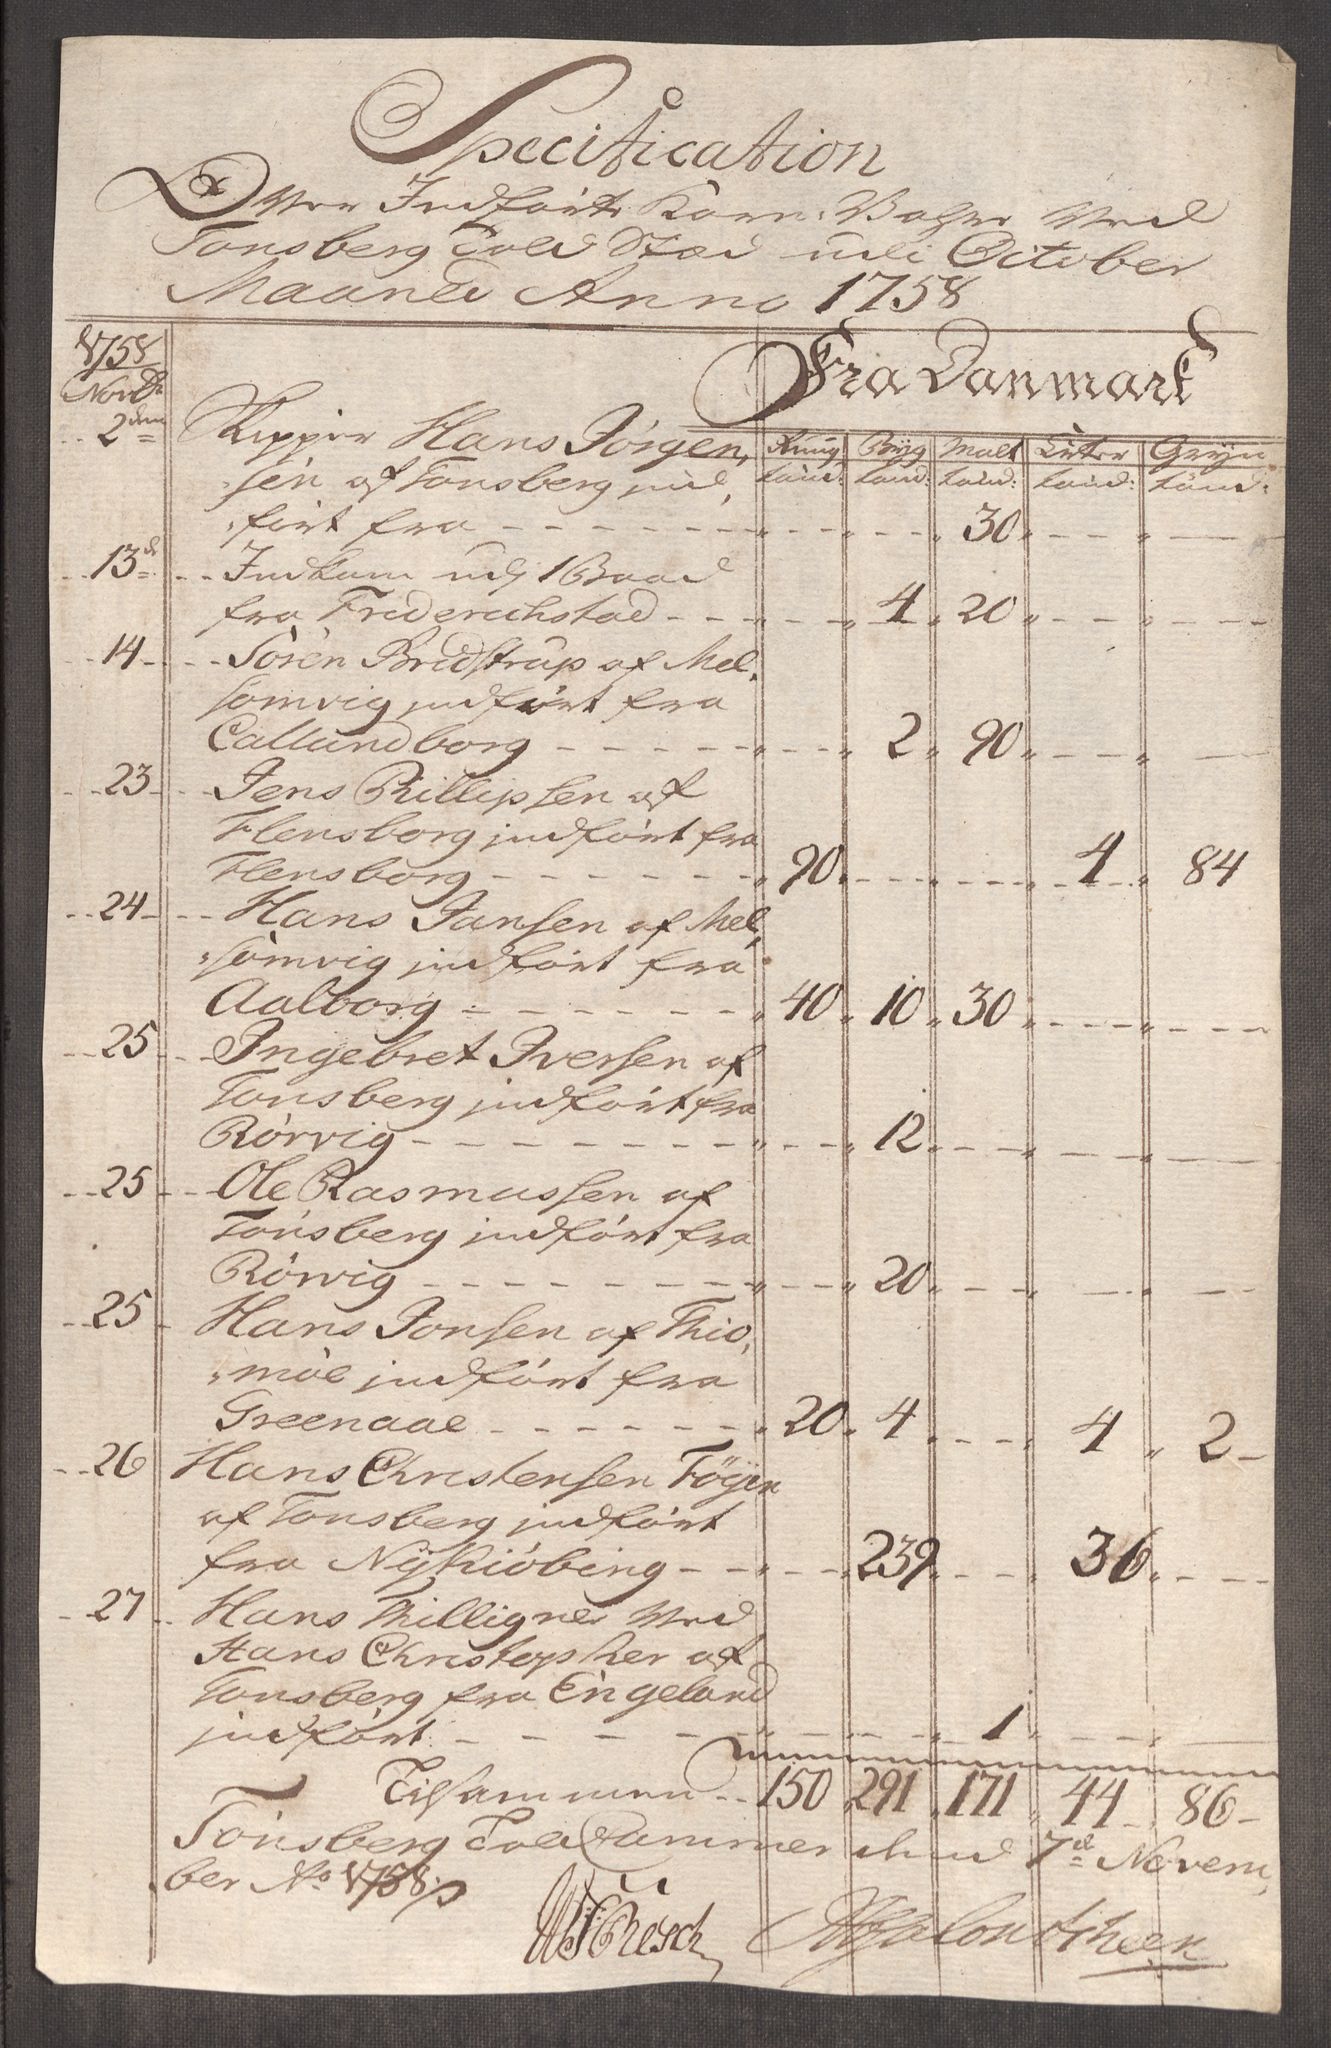 Specification
Over Indförte Korn Vahre Ved
Tonsberg Told Stæd udi October
Maaned Anno 1758
Fra Danmark
1758
Novb
Rung Byg Malt Erter Gryn
tönd: tönd: tönd: tönd: tönd:
2den Skipper Hans Jörgen,
sen af Tonsberg ind,
fört fra 30
13d Indkom udj 1 Baad
fra Friderichstad 4 20
14 Sören Bredstrup af Mel,
somvig indfört fra
Callundborg 2 90
23 Jens Phillipsen af
Flensborg jndfört fra
Flensborg 90 4 84
24 Hans Jansen af Mel,
sömvig jndfört fra
Aalborg 40 10 30
25 Ingebret Iversen af
Tonsberg jndfört fra
Rörvig 12
25 Ole Rasmussen af
Tönsberg jndfört fra
Rörvig 20
25 Hans Jonsen af Thio,
möe jndfört fra
Greenaae 20 4 4 2
26 Hans Christensen Föyen
af Tonsberg jndfört
fra Nÿkiöbing 239 36
27 Hans Thilligner Ved
Hans Christopher af
Tonsberg fra Engeland
jndfört 1
Tilsammen 150 291 171 44 86
Tönsberg Told Cammer dend 7d Novem,
ber Ao 1758